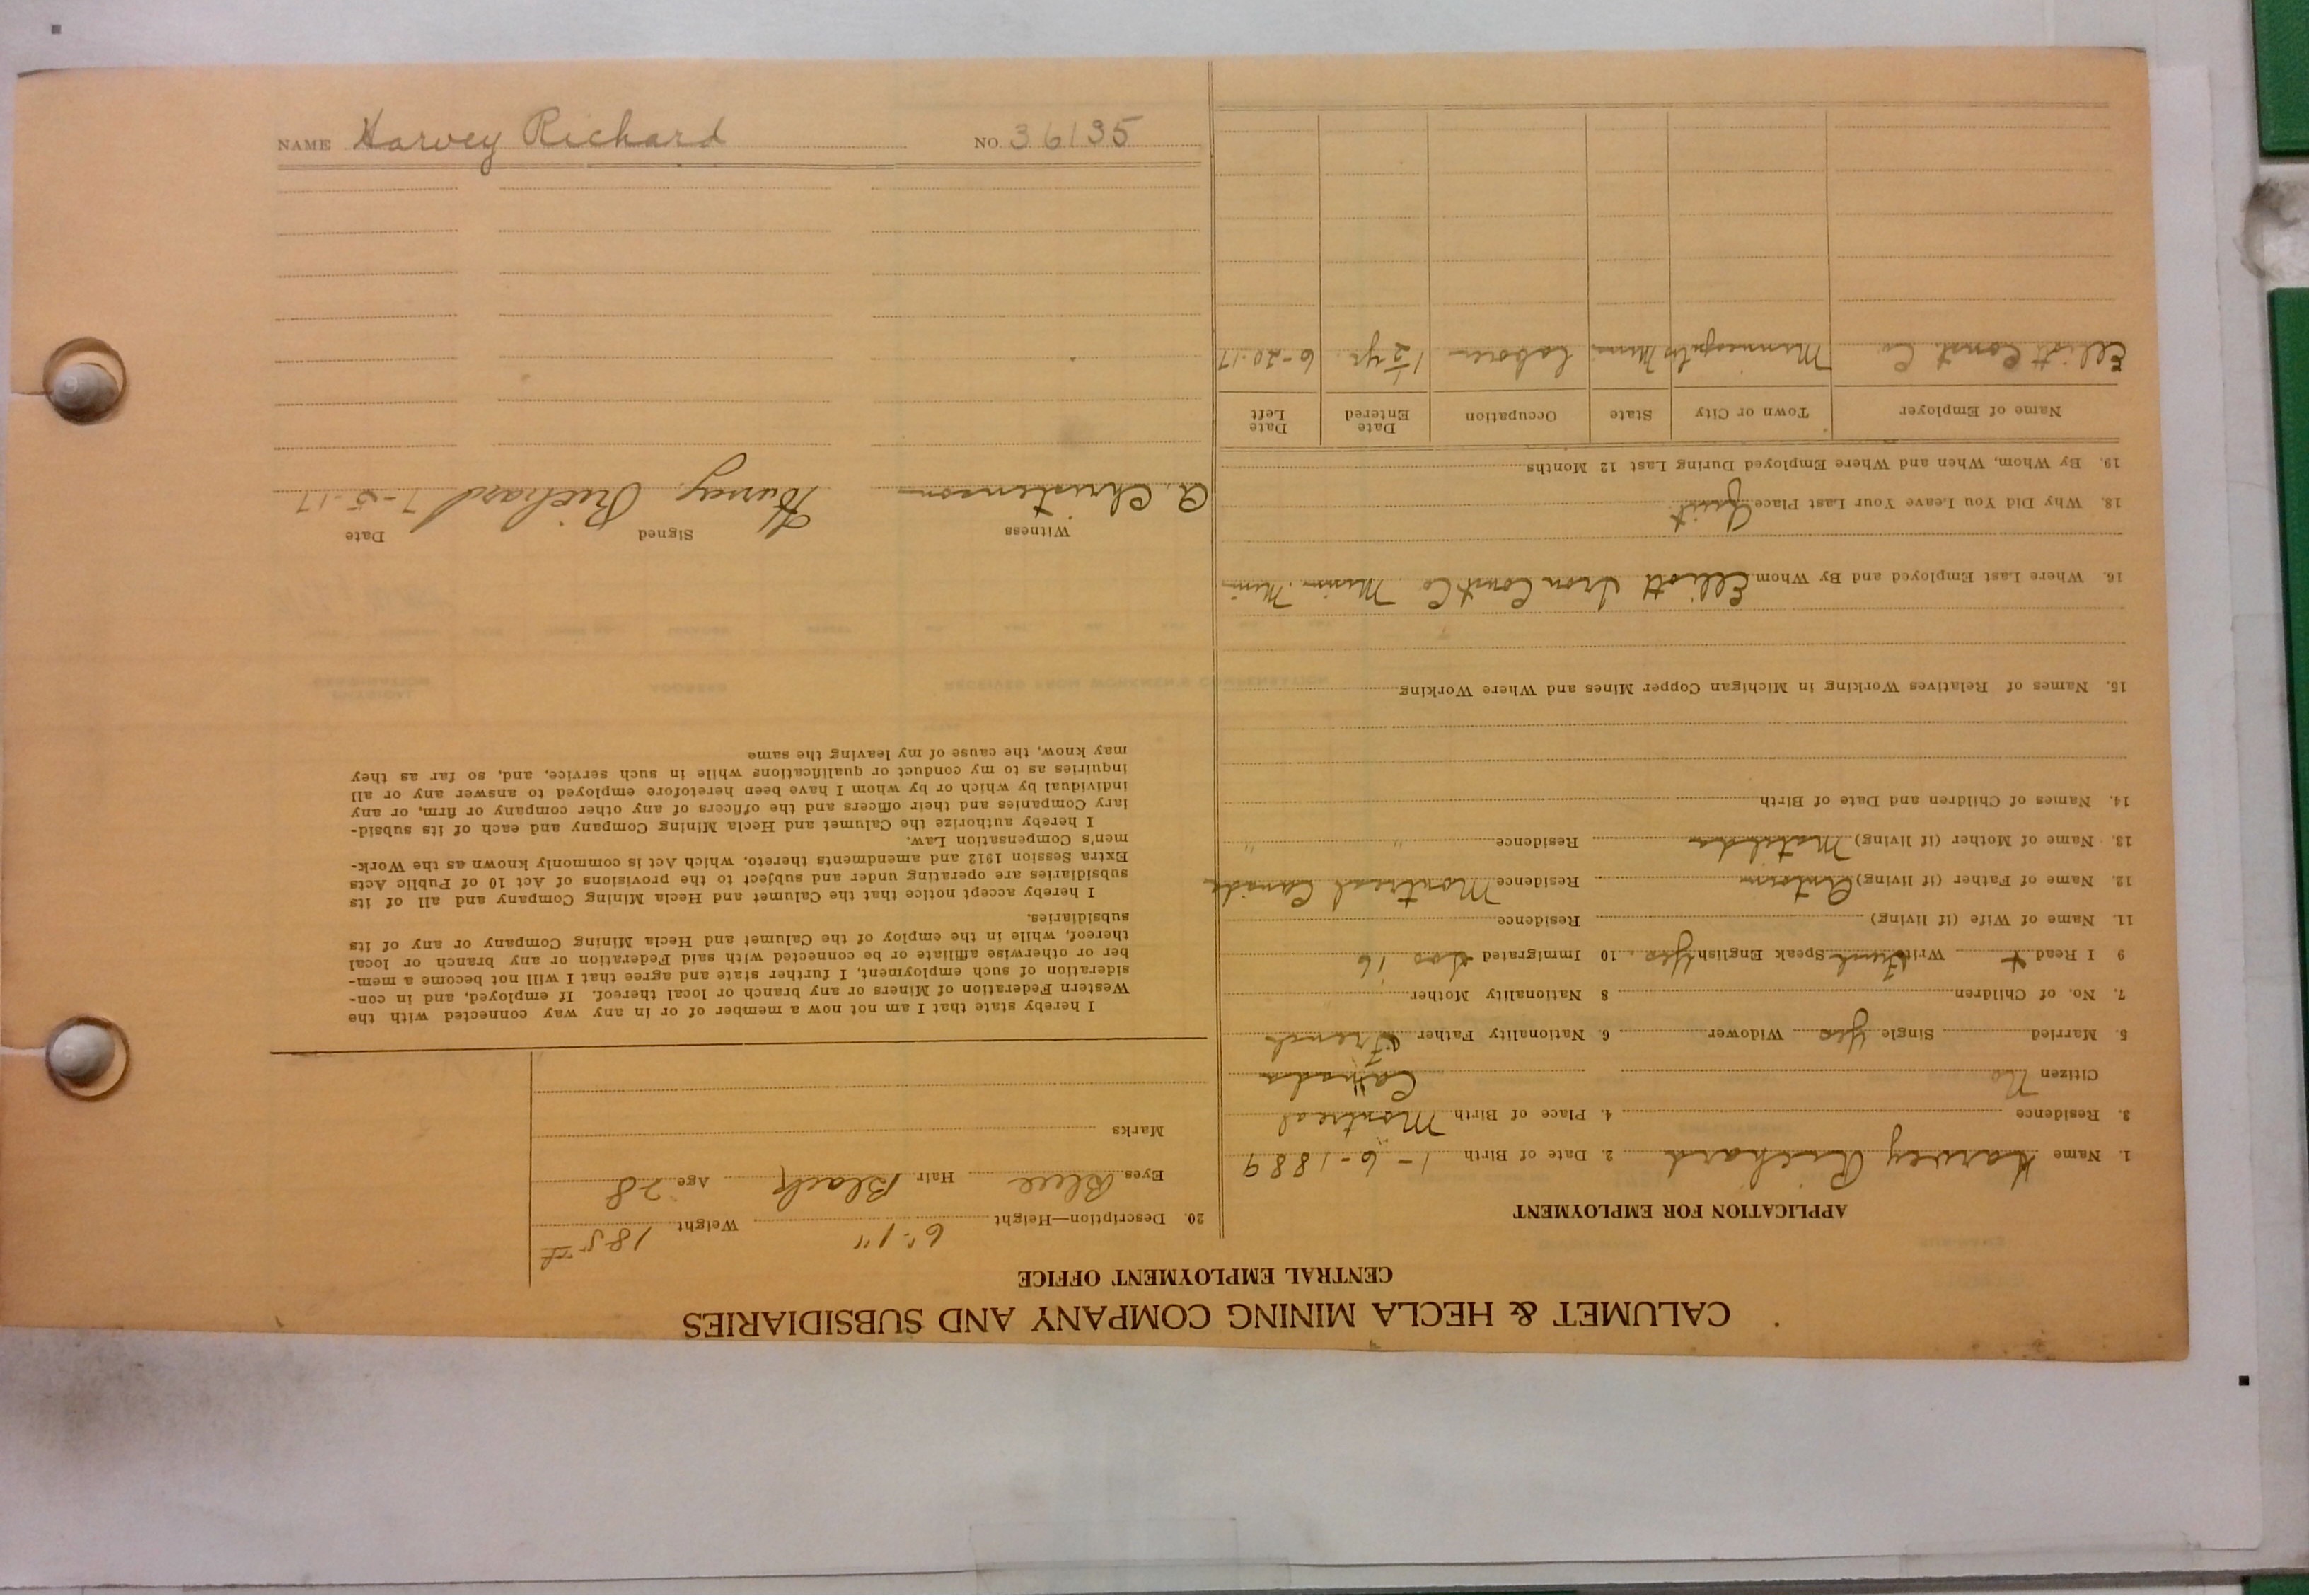 CALUMET & HECLA MINING COMPANY AND SUBSIDIARIES
CENTRAL EMPLOYMENT OFFICE
APPLICATION FOR EMPLOYMENT
1. Name Harvey Richard 2. Date of Birth 1-6-1889
3. Residence 4. Place of Birth Montreal
Citizen No Canada
5. Married Single Yes Widower 6. Nationality Father French
7. No. of Children 8 Nationality Mother
9 I Read + Write French Speak English Yes 10 Immigrated 16
11. Name of Wife (if living) Residence
12. Name of Father (if living) Residence Montreal Canada
13. Name of Mother (if living) Matilda Residence " "
14. Names of Children and Date of Birth
15. Names of Relatives Working in Michigan Copper Mines and Where Working
16. Where Last Employed and By Whom Elliott Iron Const Co Minn. Minn
18. Why Did You Leave Your Last Place Quit
19. By Whom, When and Where Employed During Last 12 Months
Name of Employer Town or City State Occupation Date Entered Date Left
Elliott Const. Co. Minneapolis Minn Laborer 1 1/2 yr. 6-20-17
20. Description—Height 6' 1" Weight 185#
Eyes Blue Hair Black Age 28
Marks
I hereby state that I am not now a member of or in any way connected with the
Western Federation of Miners or any branch or local thereof. If employed, and in con-
sideration of such employment, I further state and agree that I will not become a mem-
ber or otherwise affiliate or be connected with said Federation or any branch or local
thereof, while in the employ of the Calumet and Hecla Mining Company or any of its
subsidiaries.
I hereby accept notice that the Calumet and Hecla Mining Company and all of its
subsidiaries are operating under and subject to the provisions of Act 10 of Public Acts
Extra Session 1912 and amendments thereto, which Act is commonly known as the Work-
men's Compensation Law.
I hereby authorize the Calumet and Hecla Mining Company and each of its subsid-
iary Companies and their officers and the officers of any other company or firm, or any
individual by which or by whom I have been heretofore employed to answer any or all
inquiries as to my conduct or qualifications while in such service, and, so far as they
may know, the cause of my leaving the same
Witness Signed Date
A. Christenson Harvey Richard 7-5-17
NAME Harvey Richard NO. 36135